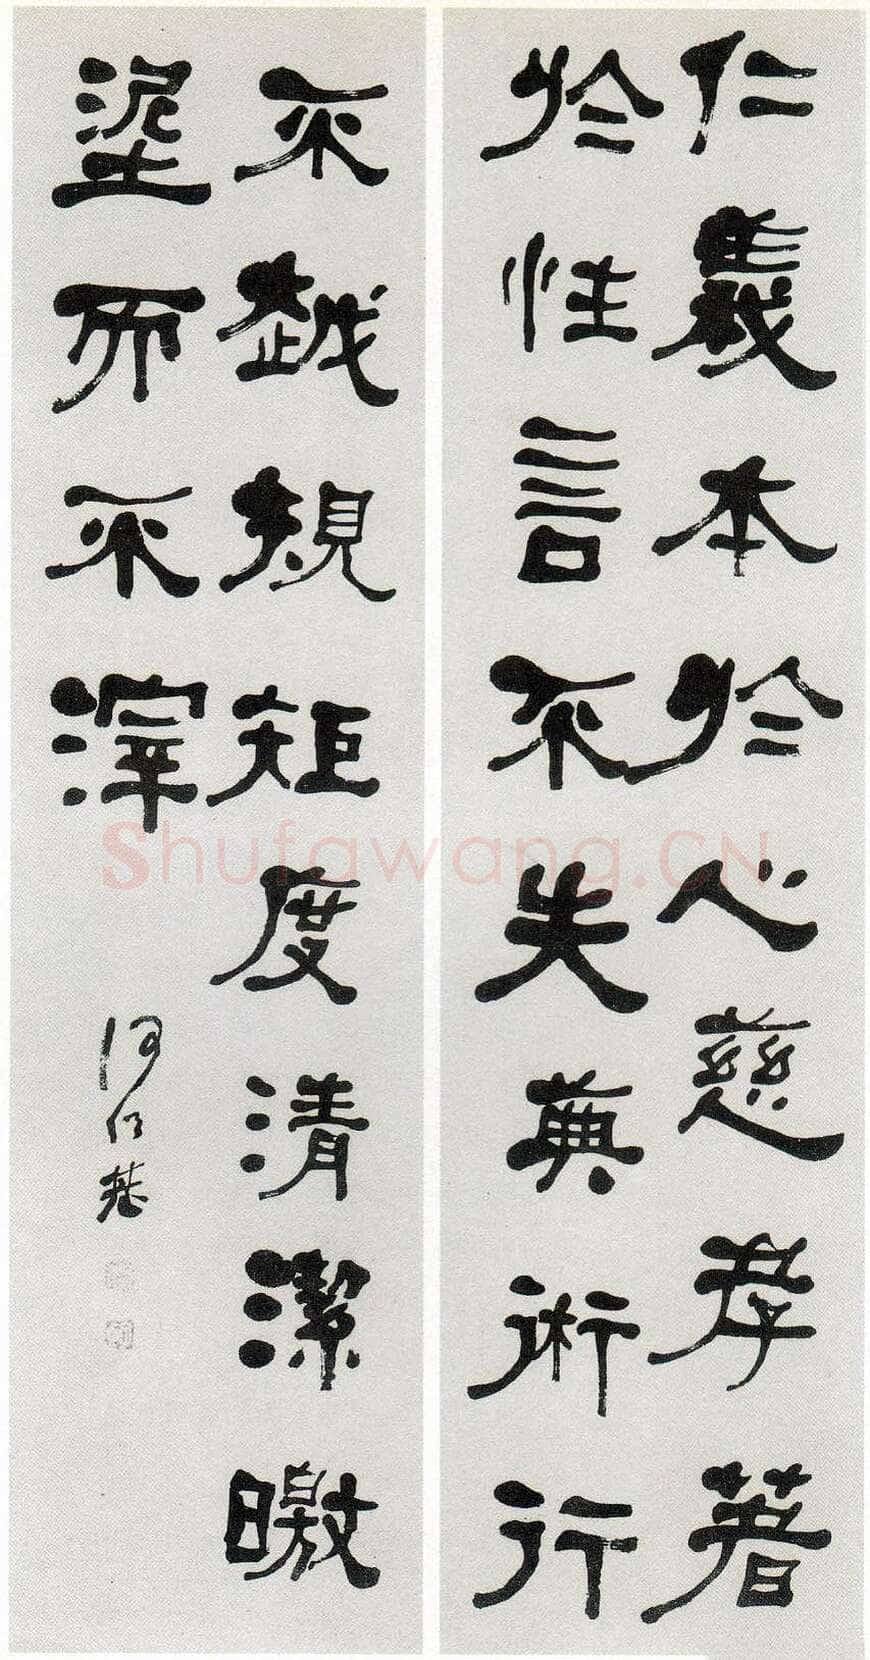 仁義本於心慈孝著
於性言不失典術行
不越規矩度清潔曒
埿而不滓
何紹基
Shufawang.CN